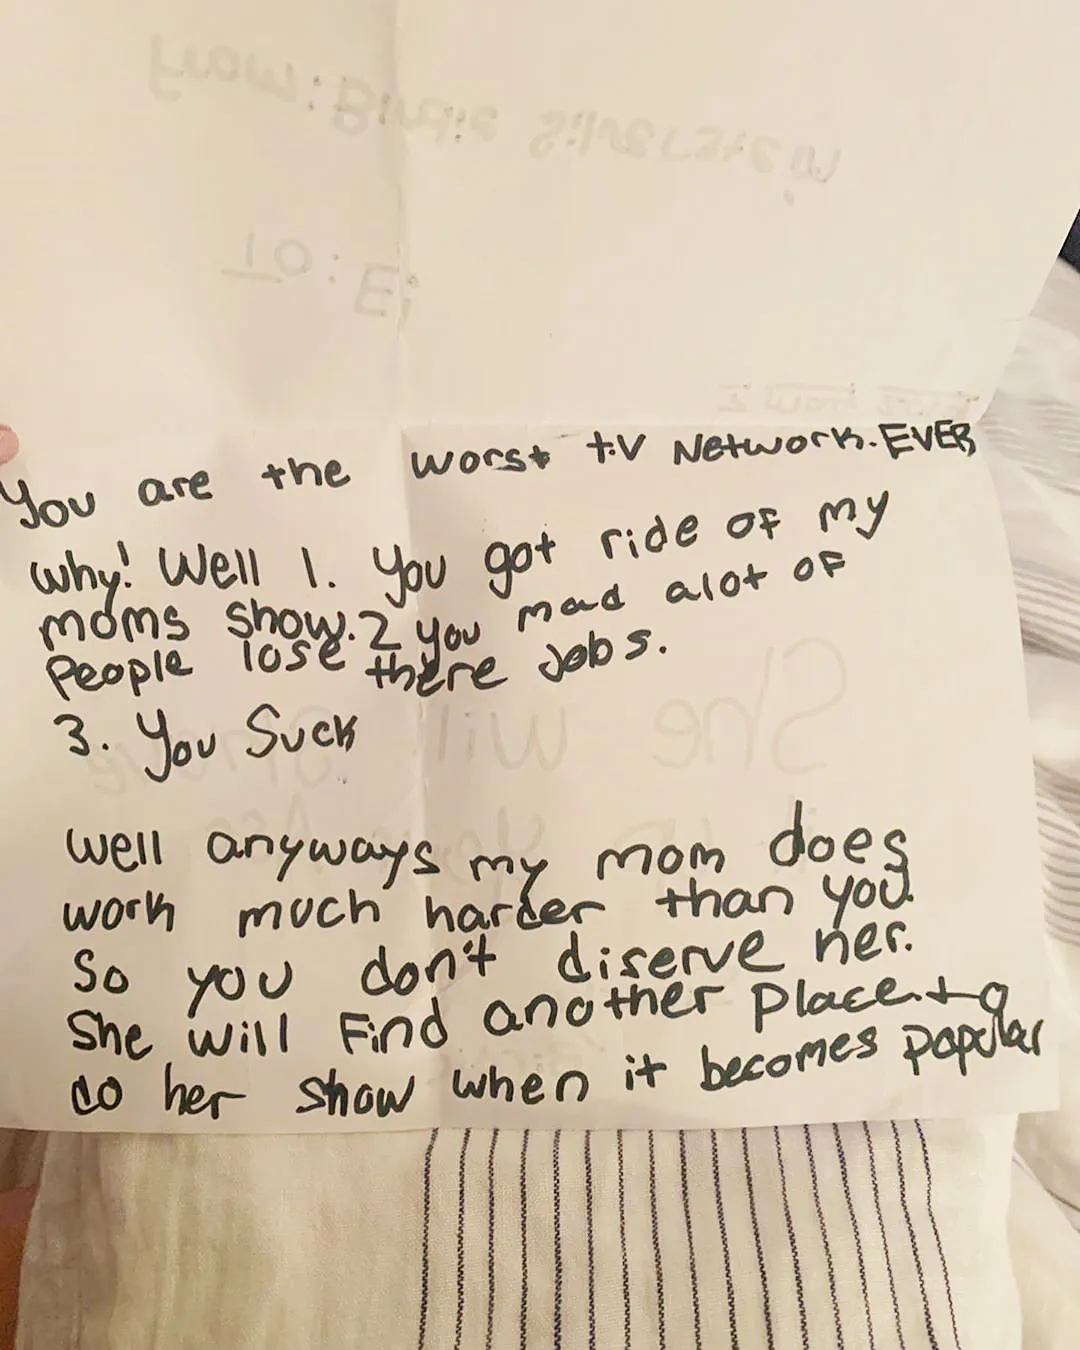 From: Birdie Silverstein
To: E!
You are the worst t.v Network.EVER
why! Well 1. You got ride of my
moms show. 2 you mad alot of
People lose there Jobs.
3. You Suck
well anyways my mom does
work much harder than you.
So you don't diserve her.
She will Find another Place to
do her show when it becomes popular
She will
it up your Ass